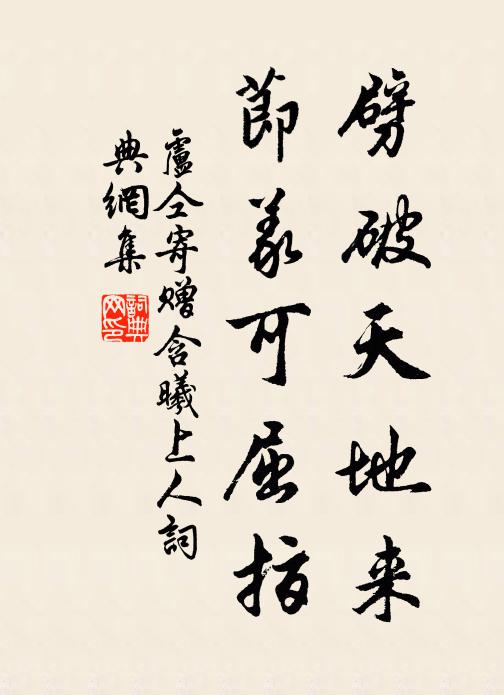 劈破天地来
節義可屈指
盧仝寄贈含曦上人詞
典網集
詞典網印